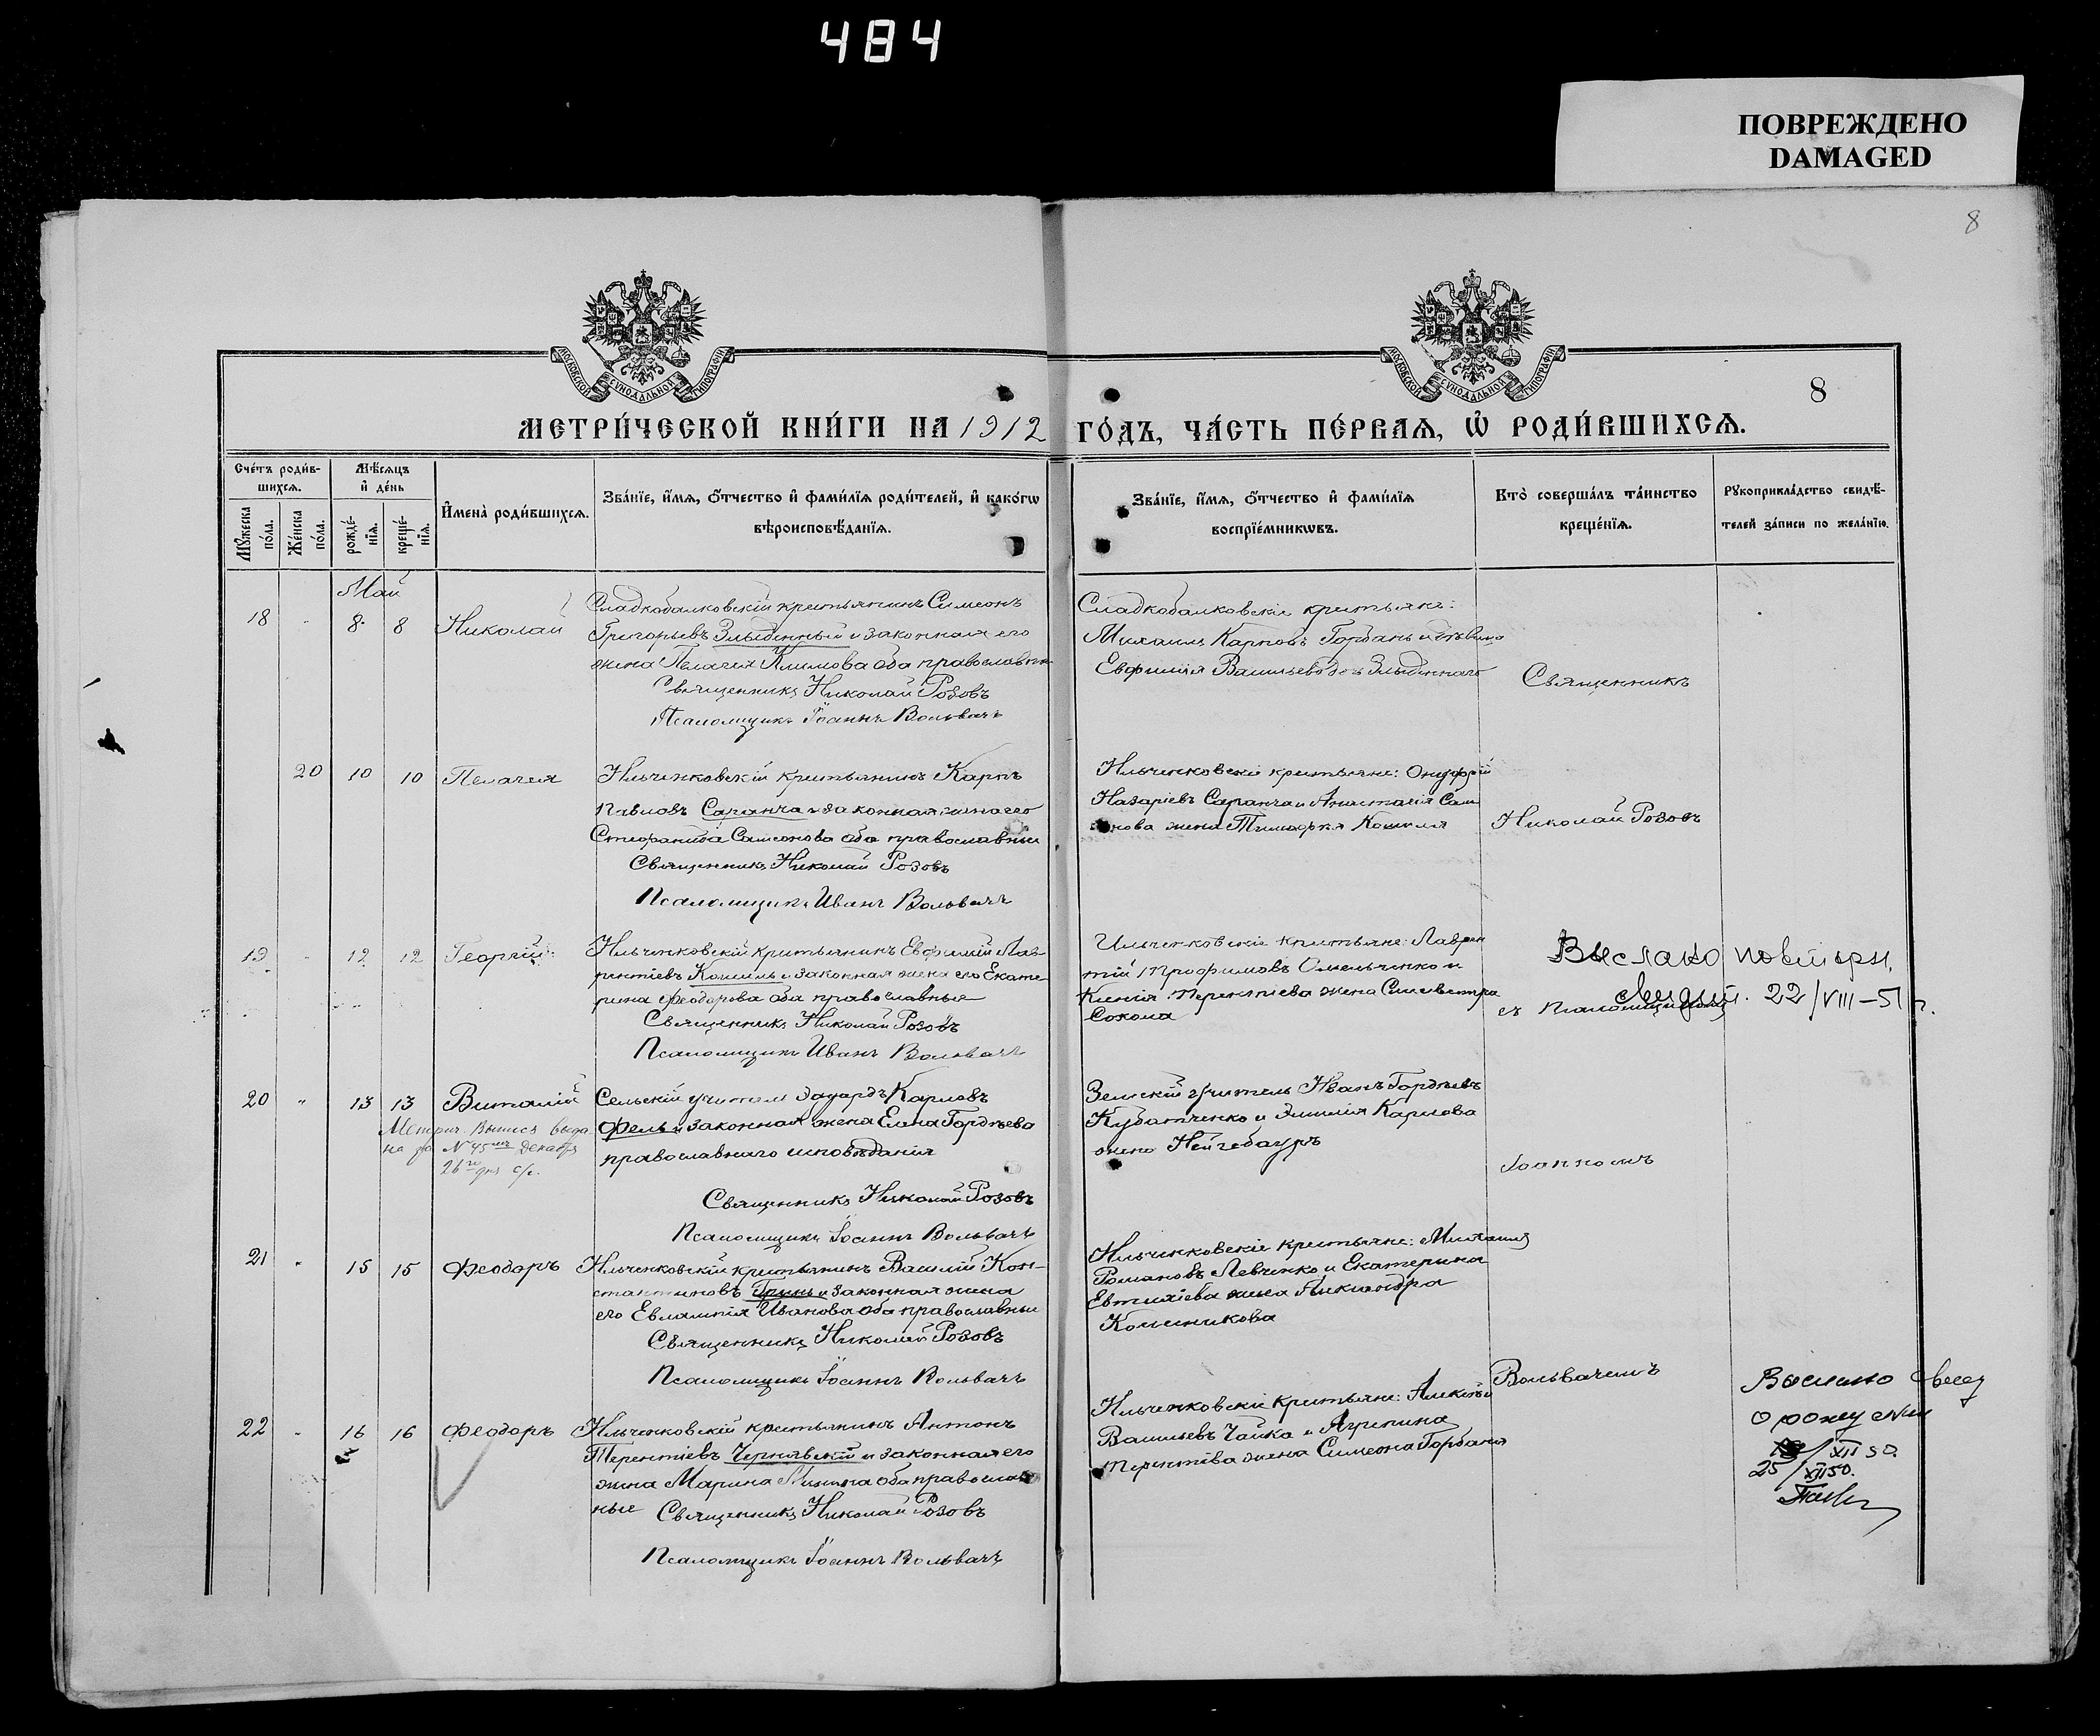 484
ПОВРЕЖДЕНО
DAMAGED
8
МОСКОВСКОЙ СѴНОДАЛЬНОЙ ТИПОГРАФІИ
МОСКОВСКОЙ СѴНОДАЛЬНОЙ ТИПОГРАФІИ
8
МЕТРИ́ЧЕСКОЙ КНИ́ГИ НА 1912 ГО́ДЪ, ЧА́СТЬ ПЕ́РВАЯ, Ѡ РОДИ́ВШИХСЯ.
Сче́тъ роди́вшихся.
Мѣ́сяцъ и де́нь
Мꙋ́жеска по́ла.
Же́нска по́ла.
рожде́нїя.
креще́нїя.
И҆мена̀ роди́вшихся.
Зва́нїе, и҆́мя, ѻ҆́тчество и҆ фами́лїя роди́телей, и҆ како́гѡ
вѣроисповѣ́данїя.
Зва́нїе, и҆́мя, ѻ҆́тчество и҆ фами́лїя
воспрїе́мникѡвъ.
Кто̀ соверша́лъ та́инство
креще́нїя.
Рꙋкоприкла́дство свидѣ́-
телей за́писи по жела́нїю.
Май
18 8 8 Николай
Сладкобалковскій крестьянинъ Симеонъ
Григорьевъ Злыденный и законная его
жена Пелагея Климова оба православные
Священникъ Николай Розовъ
Псаломщикъ Іоаннъ Вольвачъ
Сладкобалковскіе крестьяне:
Михаилъ Карповъ Горбань и девица
Евфимія Васильева Злыденнаго
Священникъ
20 10 10 Пелагея
Ильченковскій крестьянинъ Карпъ
Павловъ Саранча и законная жена его
Стефанида Самсонова оба православные
Священникъ Николай Розовъ
Псаломщикъ Иванъ Вольвачъ
Ильченковскіе крестьяне: Онуфрій
Назаріевъ Саранча и Анастасія Сам
сонова жена Тимофея Кошеля
Николай Розовъ
19 12 12 Георгій
Ильченковскій крестьянинъ Евфимій Лав-
рентіевъ Кошель и законная жена его Екате-
рина Феодорова оба православные
Священникъ Николай Розовъ
Псаломщикъ Иванъ Вольвачъ
Ильченковскіе крестьяне: Лаврен
тій Трофимовъ Омельченко и
Ксенія Терентіева жена Сильвестра
Сокола
Выслано
22/VIII-51 г.
съ псаломщикомъ
20 " 13 13 Виталій
Метрич. выпись выда
на за № 45 декабря
26го дня с/г.
Сельскій учитель Эдуардъ Карловъ
Фель и законная жена Елена Гордѣева
православнаго исповѣданія
Священникъ Николай Розовъ
Псаломщикъ Іоаннъ Вольвачъ
Земскій учитель Иванъ Гордѣевъ
Кубатченко и Эмилія Карлова
жена Нейгебауръ
Іоанномъ
21 " 15 15 Феодоръ
Ильченковскій крестьянинъ Василій Кон-
стантиновъ Гринь и законная жена
его Евлампія Иванова оба православные
Священникъ Николай Розовъ
Псаломщикъ Іоаннъ Вольвачъ
Ильченковскіе крестьяне: Михаилъ
Романовъ Левченко и Екатерина
Евтихіева жена Александра
Колесникова
Вольвачемъ
22 " 16 16 Феодоръ
Ильченковскій крестьянинъ Антонъ
Терентіевъ Чернявскій и законная его
жена Марина оба православ
ные Священникъ Николай Розовъ
Псаломщикъ Іоаннъ Вольвачъ
Ильченковскіе крестьяне: Алексѣй
Васильевъ Чайка и Агрипина
Терентіева жена Симеона Горбаня
Выслано
/XII 50.
25/XII 50.